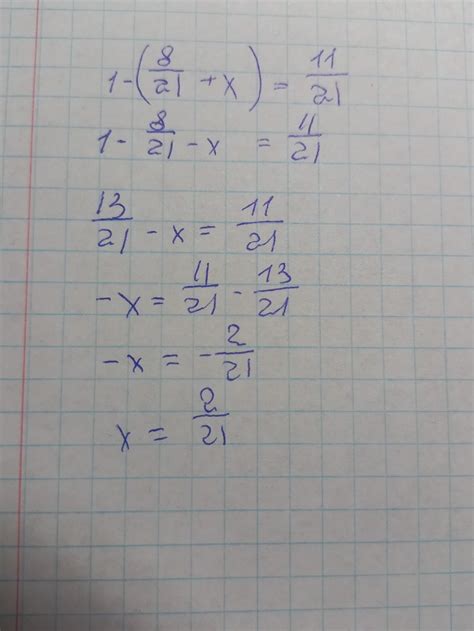 1-(8/21+x)=11/21
1-8/21-x=11/21
13/21-x=11/21
-x=11/21-13/21
-x=-2/21
x=2/21